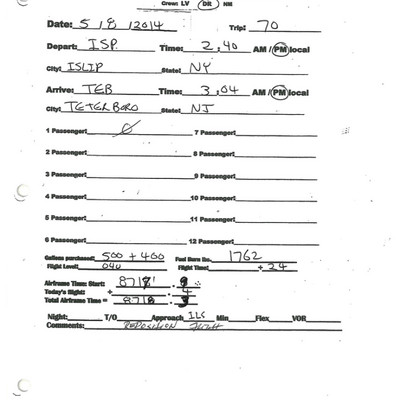 Crew: LV DR NM
Date: 5 / 8 / 2014 Trip: 70
Depart: ISP Time: 2,40 AM / PM local
City: ISLIP State: NY
Arrive: TEB Time: 3,04 AM / PM local
City: TETERBORO State: NJ
1 Passenger: 0 7 Passenger:
2 Passenger: 8 Passenger:
3 Passenger: 9 Passenger:
4 Passenger: 10 Passenger:
5 Passenger: 11 Passenger:
6 Passenger: 12 Passenger:
Gallons purchased: 500 + 400 Fuel Burn lbs. 1762
Flight Level: 040 Flight Time: + 24
Airframe Time: Start: 8717 . 9
Today's flight: + . 4
Total Airframe Time = 8718 . 3
Night: T/O Approach ILS Min Flex VOR
Comments: REPOSITION FLIGHT